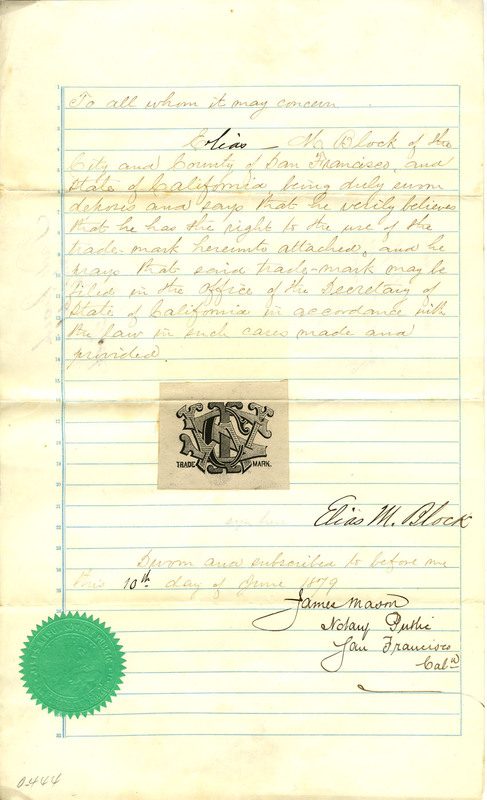 To all whom it may concern.
Elias M Block of the
City and County of San Francisco, and
State of California, being duly sworn
deposes and says that he verily believes
that he has the right to the use of the
trade-mark hereunto attached, and he
prays that said trade-mark may be
filed in the Office of the Secretary of
State of California in accordance with
the law in such cases made and
provided.
TRADE MARK.
Elias M. Block
Sworn and subscribed to before me
this 10th day of June 1879
James Mason
Notary Public
San Francisco
Cala
0444